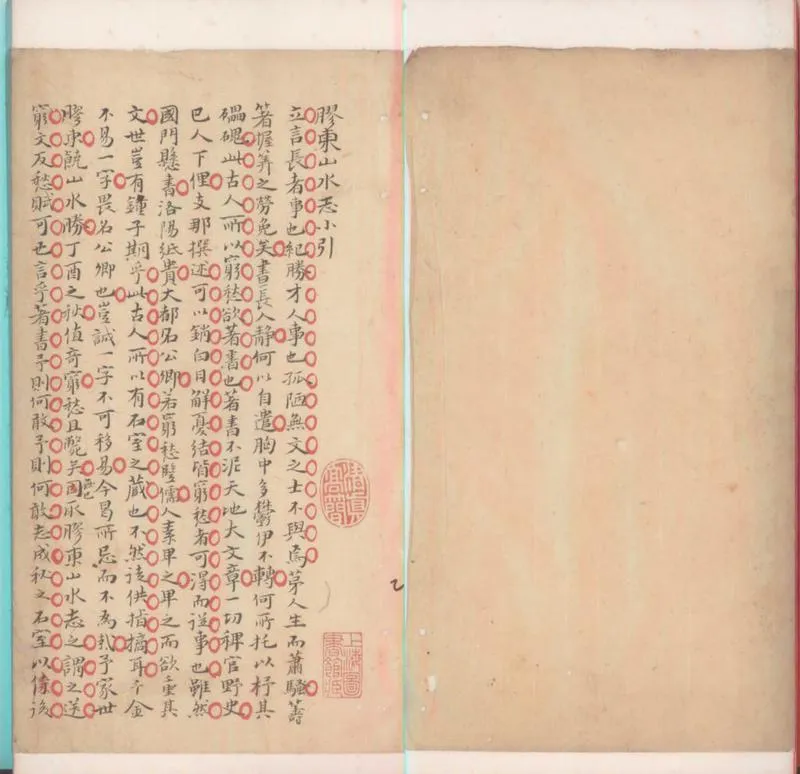 膠東山水志小引
立言長者事也紀勝才人事也孤陋無文之士不與焉第人生而蕭騷籌
著握筭之勞免矣書長人静何以自遣胸中多鬱伊不轉何所托以杼其
礧磈此古人所以窮愁欲著書也著書不泥天地大文章一切稗官野史
巴人下俚支那撰述可以銷白日解憂結皆窮愁者可得而從事也雖然
國門懸書洛陽紙貴大都名公卿若窮愁豎儒人素卑之卑之而欲重其
文世豈有鐘子期乎此古人所以有石室之藏也不然該供指摘耳夫金
不易一字畏名公卿也豈誠一字不可移易今曷所忌而不為哉予家世
膠東饒山水勝丁酉之秋值奇窮愁且斃矣因取膠東山水志之謂之送
窮文反愁賦可也言乎著書予則何敢予則何敢志成秘之石室以俟
上海圖書館藏